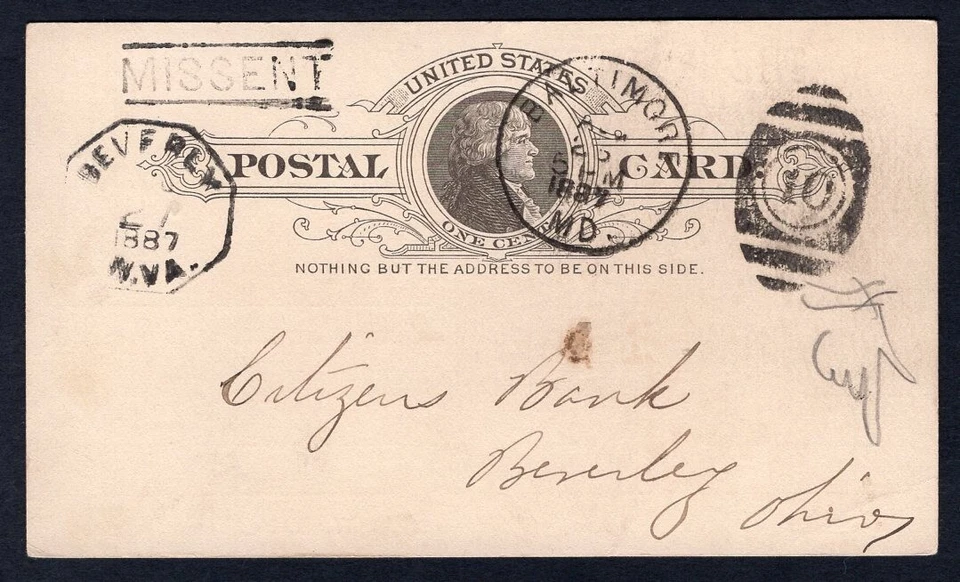 MISSENT
UNITED STATES
POSTAL CARD.
ONE CENT
NOTHING BUT THE ADDRESS TO BE ON THIS SIDE.
BEVERLY
1887
W.VA.
BALTIMORE
5 PM
1887
MD.
Citizens Bank
Beverley
Ohio